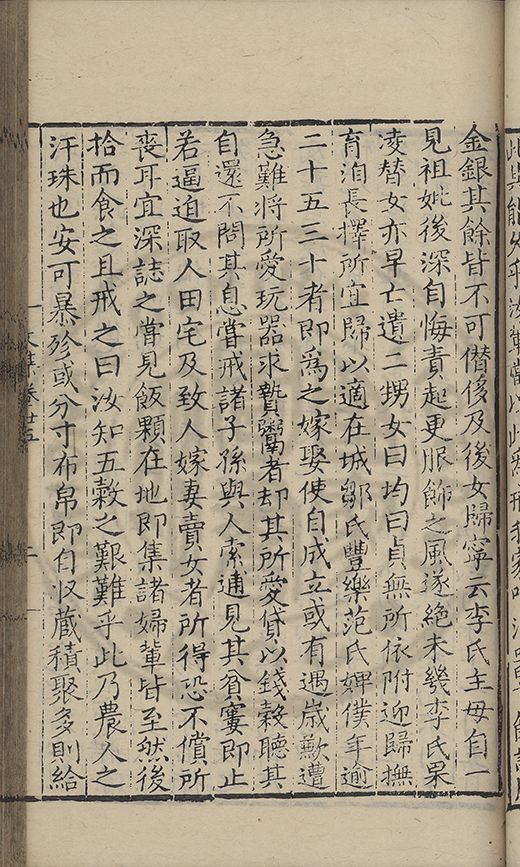 金銀其餘皆不可僭侈及後女歸寧云李氏主毋自一
見祖妣後深自悔責起更服飾之風遂絕未幾李氏果
凌替女亦早亡遺二甥女曰均曰貞無所依附迎歸撫
育洎長擇所宜歸以適在城鄒氏豐樂范氏婢僕年逾
二十五三十者即爲之嫁娶使自成立或有遇歲歉遭
急難將所愛玩器求贄鬻者却其所愛貸以錢穀聽其
自還不問其息嘗戒諸子孫與人索逋見其貧窶即止
若逼迫取人田宅及致人嫁妻賣女者所得恐不償所
喪耳宜深誌之嘗見飯顆在地即集諸婦輩皆至然後
拾而食之且戒之曰汝知五穀之艱難乎此乃農人之
汗珠也安可暴殄或分寸布帛即自收蔵積聚多則給